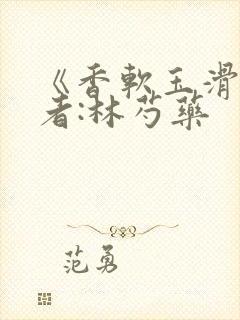 《香軟玉滑
者:林芍藥
范勇